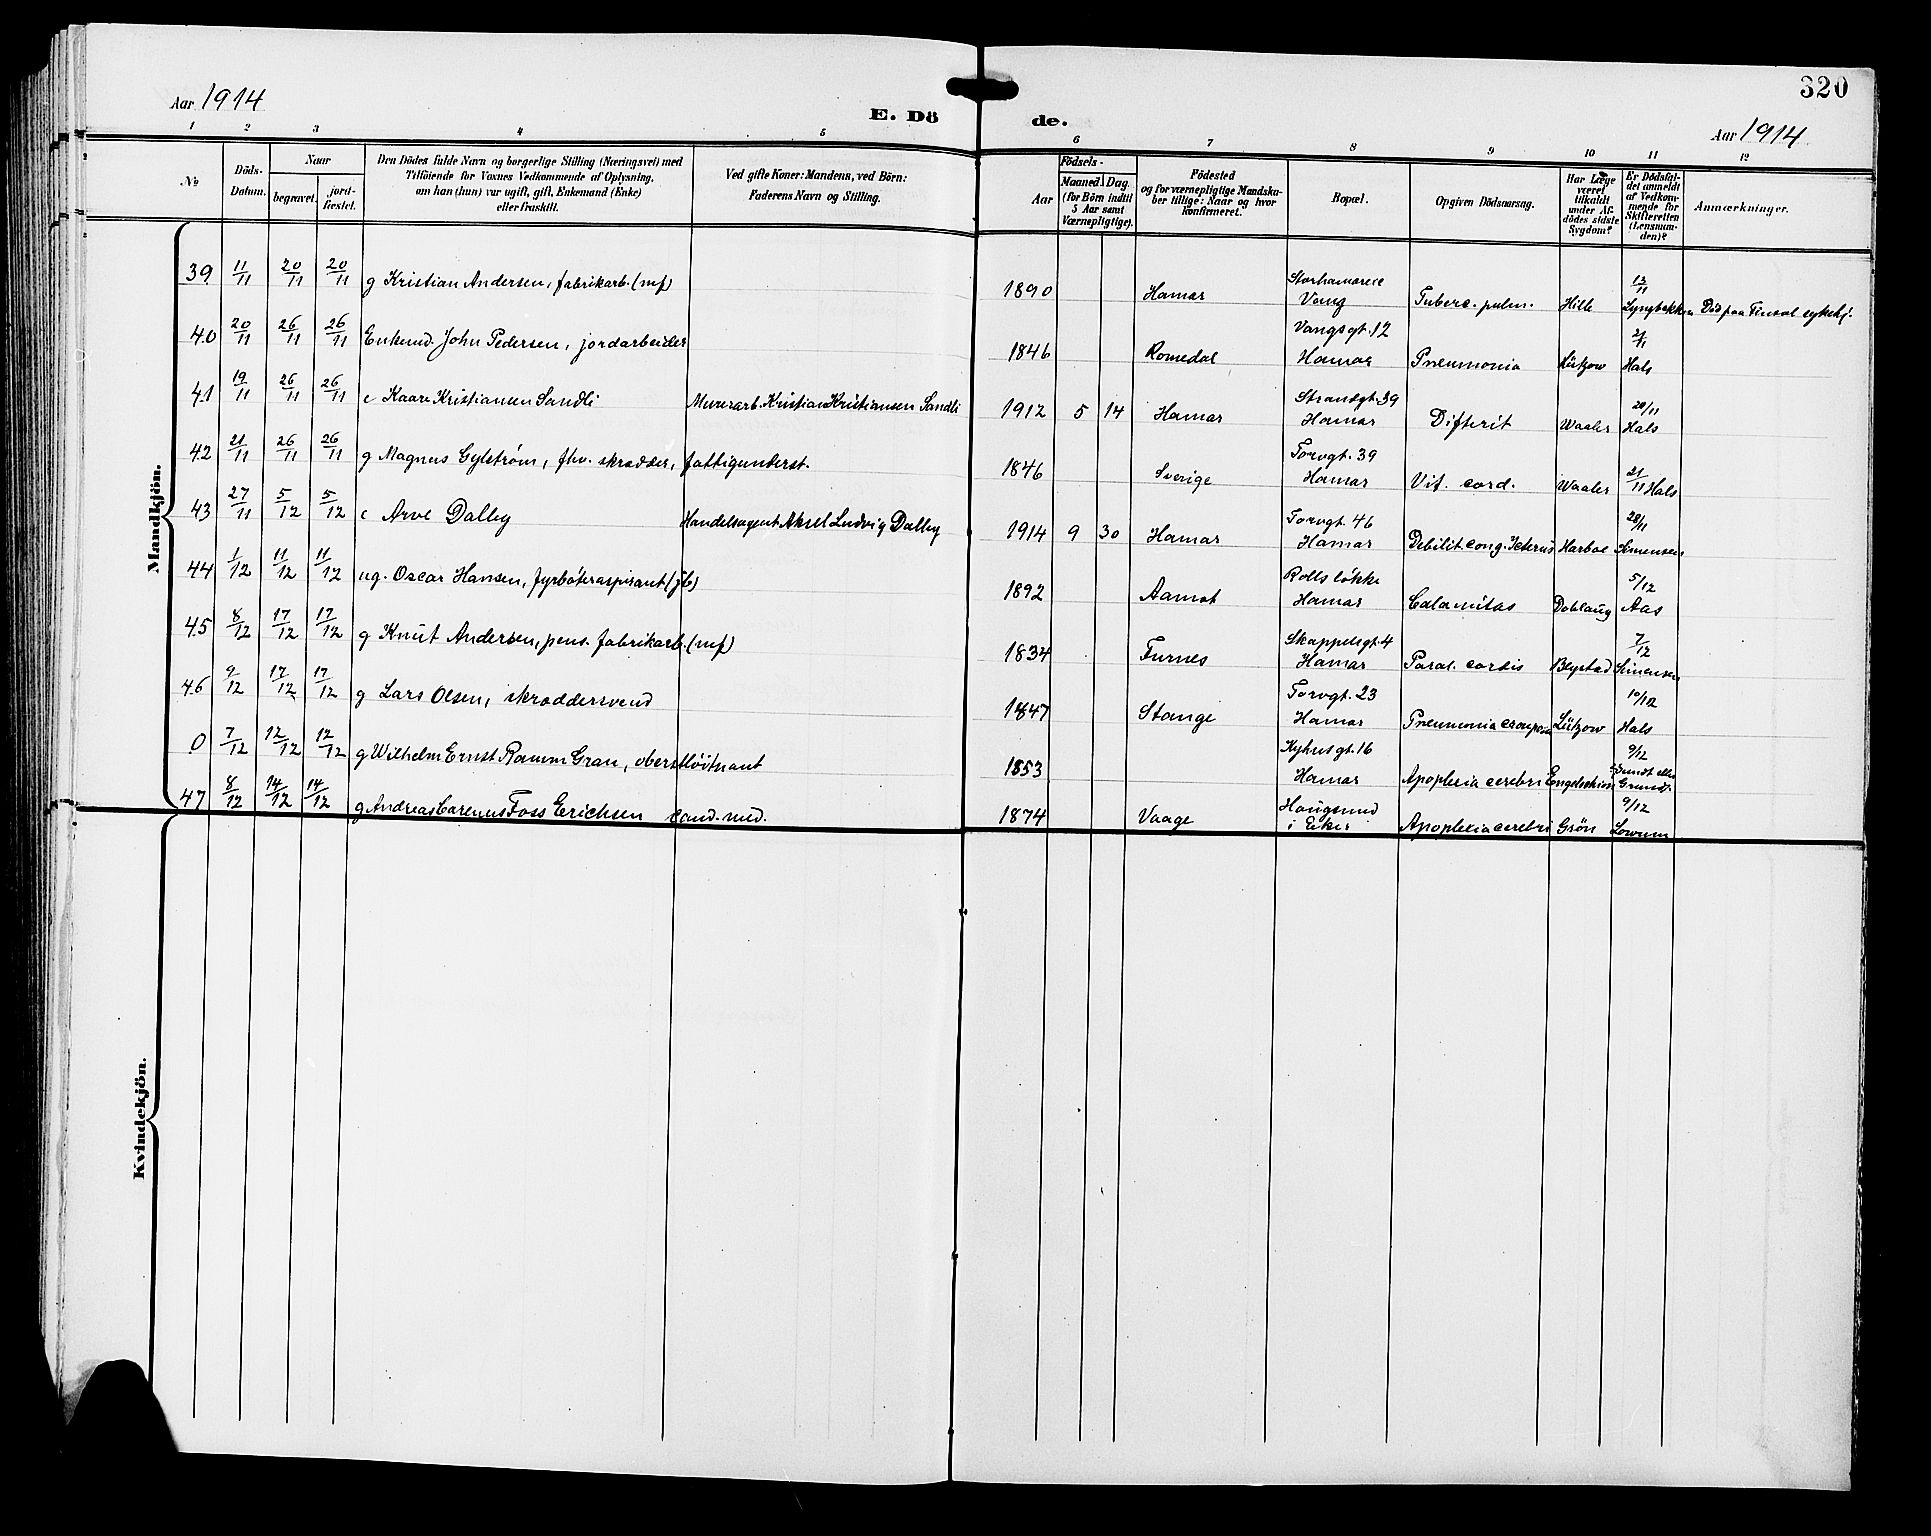 320
Aar 1914
E. Dö de.
Aar 1914
1 2 3 4 5 6 7 8 9 10 11 12
No
Döds-
Datum.
Naar
begravet.
jord-
fæstet.
Den Dödes fulde Navn og borgerlige Stilling (Næringsvei) med
Tilföiende for Voxnes Vedkommende af Oplysning,
om han (hun) var ugift, gift, Enkemand (Enke)
eller fraskilt.
Ved gifte Koner: Mandens, ved Börn:
Faderens Navn og Stilling.
Födsels-
Aar
Maaned. Dag.
(for Börn indtil
5 Aar samt
Værnepligtige).
Födested
og for værnepligtige Mandska-
ber tillige: Naar og hvor
konfirmeret.
Bopæl.
Opgiven Dödsaarsag.
Har Læge
været
tilkaldt
under Af-
dödes sidste
Sygdom?
Er Dödsfal-
det anmeldt
af Vedkom-
mende for
Skifteretten
(Lensman-
den)?
Anmærkninger.
Mandkjön.
39 11/11 20/11 20/11 g Kristian Andersen, fabrikarb. (mf) 1890 Hamar Vang Tuberc. pulm. Hille
40 20/11 26/11 26/11 Enkemd. John Pedersen, jordarbeider 1846 Romedal Vangsgt. 12 Hamar Pneumonia Lützow Hals
41 19/11 26/11 26/11 c Kaare Kristiansen Sandli Murerarb. Kristian Kristiansen Sandli 1912 5 14 Hamar Strandgt. 39 Hamar Difterit Waaler 20/11 Hals
42 21/11 26/11 26/11 g Magnus Gylstrøm, fhv. skrædder, fattigunderst. 1846 Sverige Torvgt. 39 Hamar Vit. cord. Waaler 21/11 Hals
43 27/11 5/12 5/12 c Arve Dalby Handelsagent Aksel Ludvig Dalby 1914 9 30 Hamar Torvgt. 46 Hamar Debilit cong. Icterus Harboe 28/11 Simensen
44 1/12 11/12 11/12 ug. Oscar Hansen, fyrbøteraspirant (jb) 1892 Aamot Rollsløkke Hamar Calamitas Dablaug 5/12 Aas
45 8/12 17/12 17/12 g Knut Andersen, pens. fabrikarb. (mf) 1834 Furnes Skappelsgt. 4 Hamar Paral. cordis Blystad 7/12 Simensen
46 9/12 17/12 17/12 g Lars Olsen, skræddersvend 1847 Stange Torvgt. 23 Hamar Pneumonia crouposa Lützow 10/12 Hals
0 7/12 12/12 12/12 g Wilhelm Ernst Ramm Gran, oberstløitnant 1853 Hamar Apoplexia cerebri 9/12
47 8/12 14/12 14/12 g Andreas Carenus Foss Erichsen cand. med. 1874 Vaage Hougsund i Eker Apoplexia cerebri Grøn 9/12
Kvindekjön.